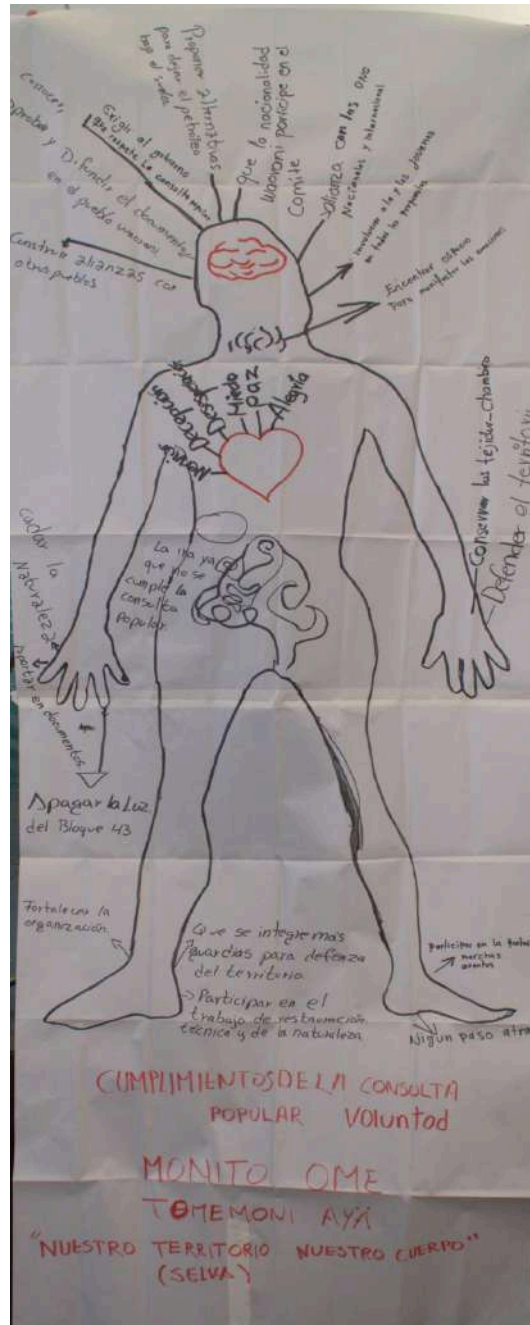 conocer,
aprobar y Difundir el documental
en el pueblo waorani
Exigir al gobierno
que respete la consulta popular
Proponer alternativas
para dejar el petróleo
bajo el suelo
que la nacionalidad
waorani participe en el
Comite
alianza con las ONG
Nacionales y internacional
involucrar a la y los jóvenes
en todos los
Encontrar espacio
para manifestar las emociones
Construir alianzas con
otros pueblos
Nervios
Decepción
Desesperación
Miedo
Paz
Alegría
Conservar los tejidos-chambra
Defender el territorio
La ira ya
que no se
cumple la
consulta
Popular.
cuidar la
Naturaleza
aportar en documentos
Apagar la Luz
del Bloque 43
Fortalecer la
organización.
Que se integre más
guardias para defenza
del territorio
Participar en el
trabajo de restauración
técnica y de la naturaleza
participar en la
marchas
eventos
Nigun paso atra
CUMPLIMIENTOS DE LA CONSULTA
POPULAR Voluntad
MONITO OME
TOMEMONI AYÄ
"NUESTRO TERRITORIO NUESTRO CUERPO"
(SELVA)